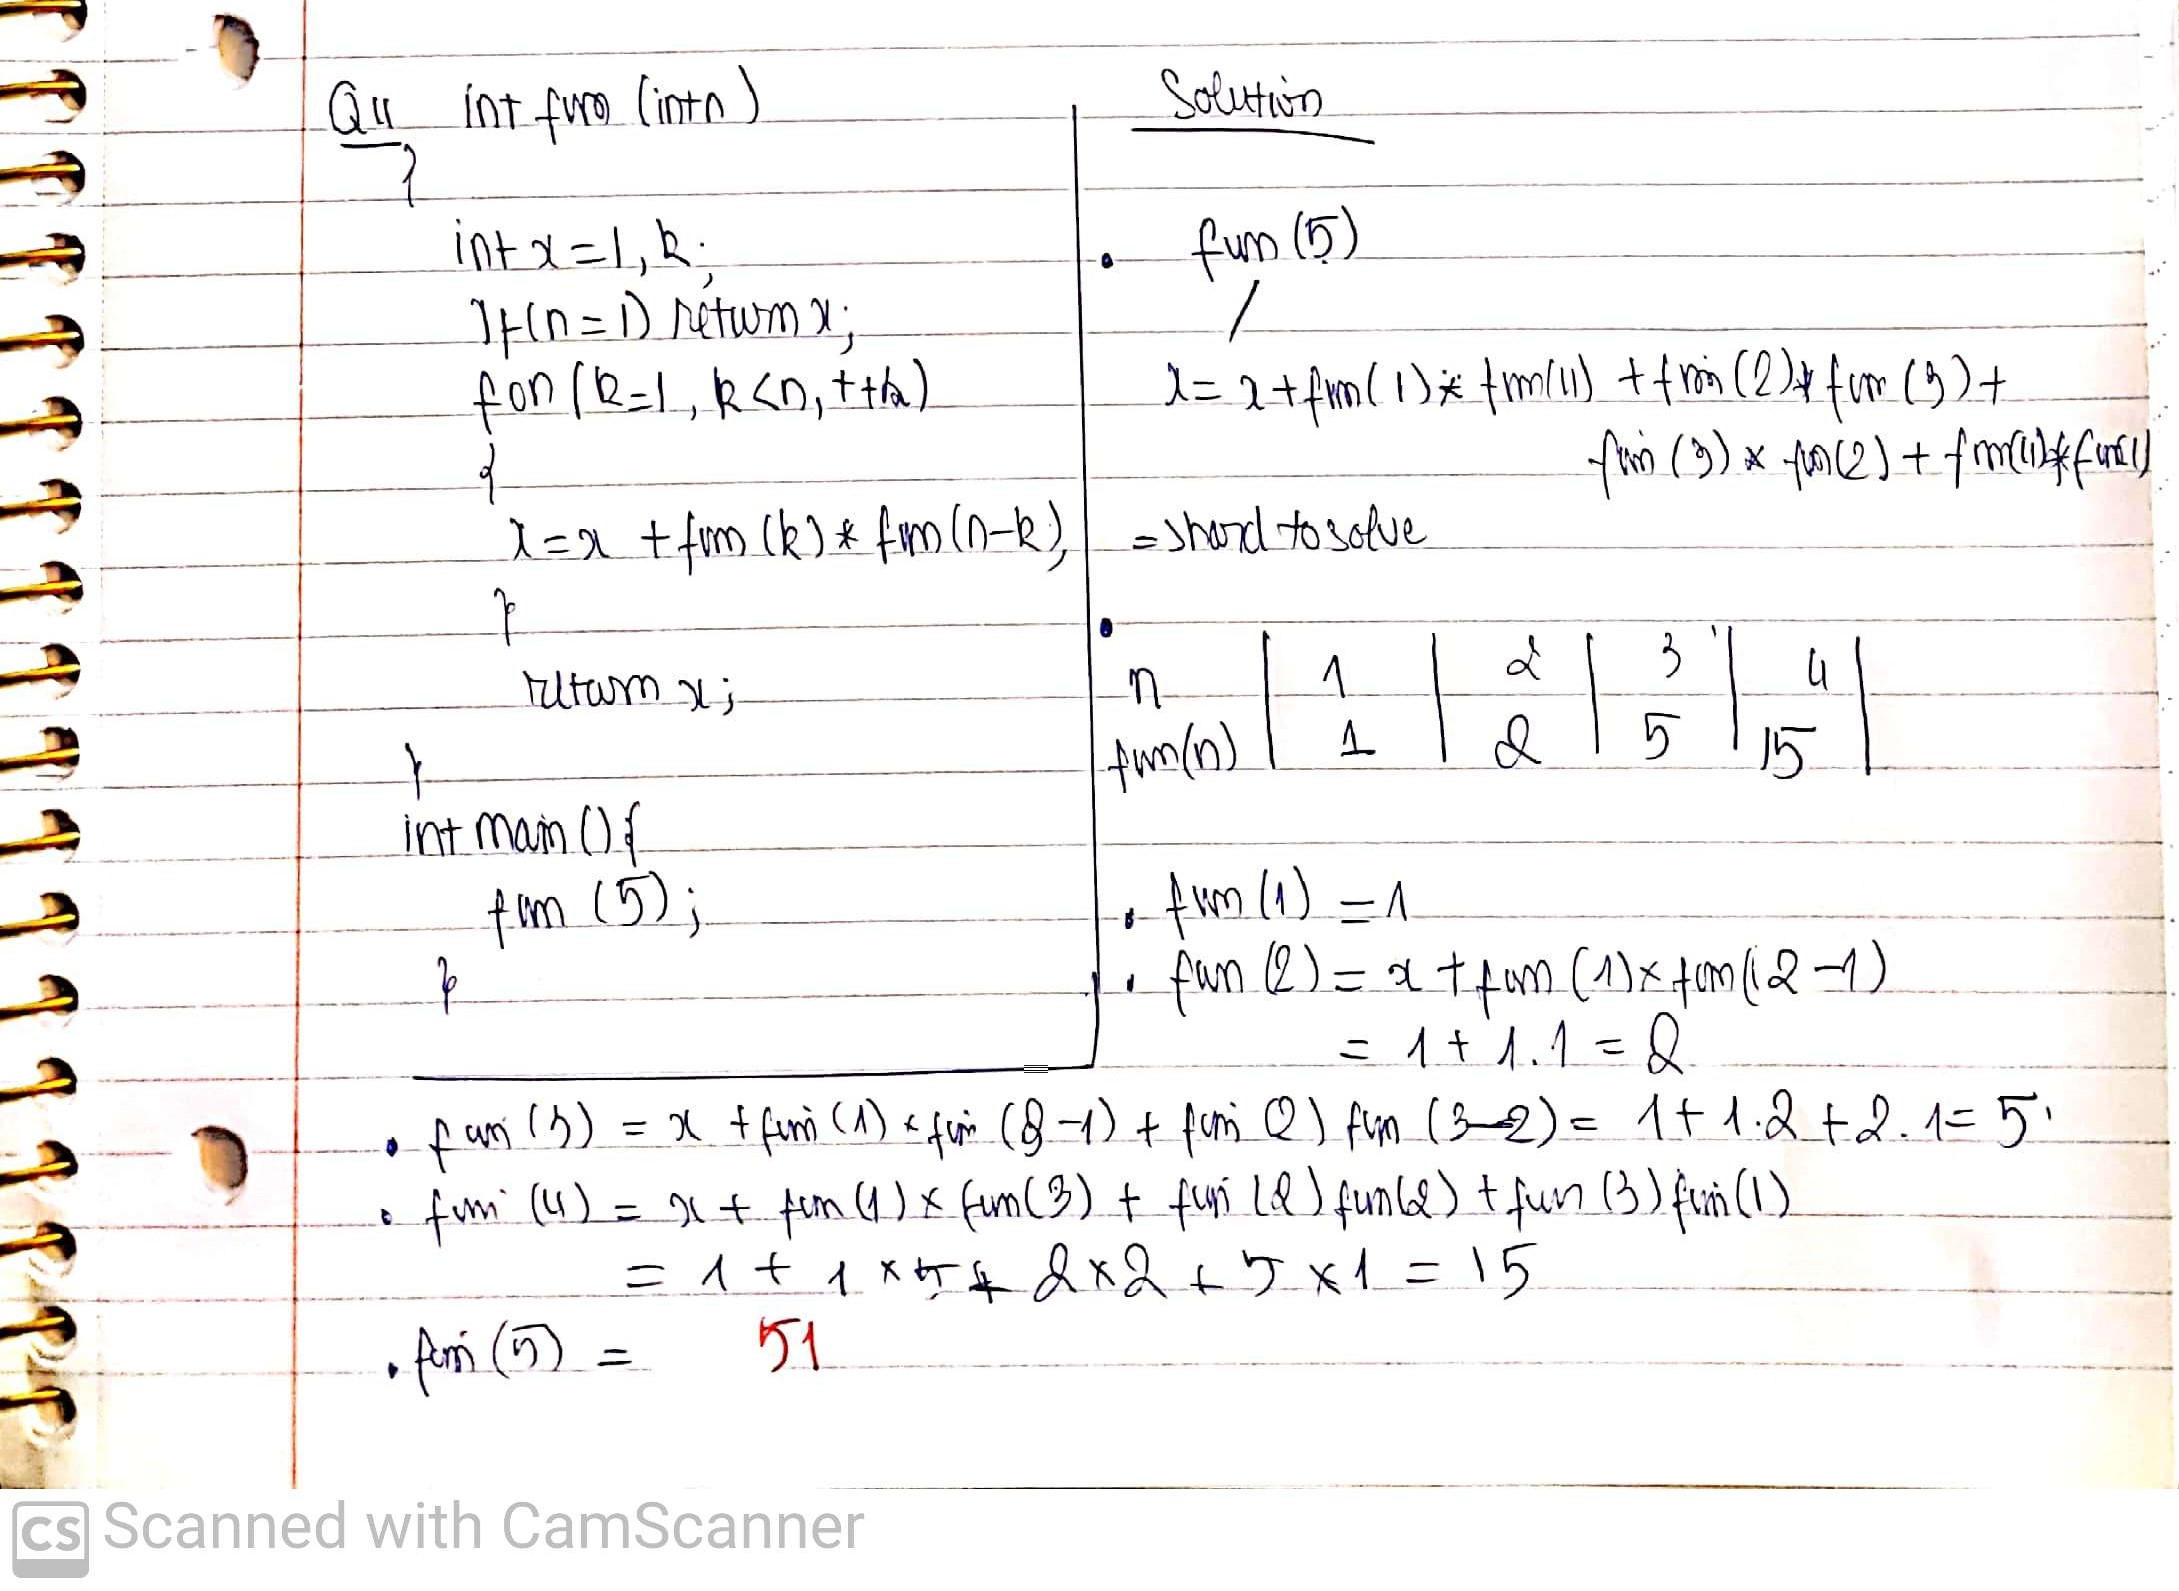 Q4 int fun (int n)
{
int x=1, k;
If(n=1) return x;
for (k=1, k<n, ++k)
{
x=x + fun (k) * fun (n-k),
}
return x;
}
int main () {
fun (5);
}
Solution
fun (5)
/
x= x+fun(1)* fun(4) + fun (2)* fun (3)+
fun (3) * fun(2) + fun(4)*fun(1)
= hard to solve
n | 1 | 2 | 3 | 4 |
fun(n) | 1 | 2 | 5 | 15 |
fun (1) = 1
fun (2) = x + fun (1)* fun(2-1)
= 1 + 1.1 = 2
fun (3) = x + fun (1) * fun (3-1) + fun (2) fun (3-2) = 1+1.2+2.1= 5
fun (4) = x + fun (1) × fun(3) + fun (2) fun(2) + fun (3) fun(1)
= 1 + 1 × 5 + 2×2 + 5 ×1 = 15
fun (5) = 51
CS Scanned with CamScanner